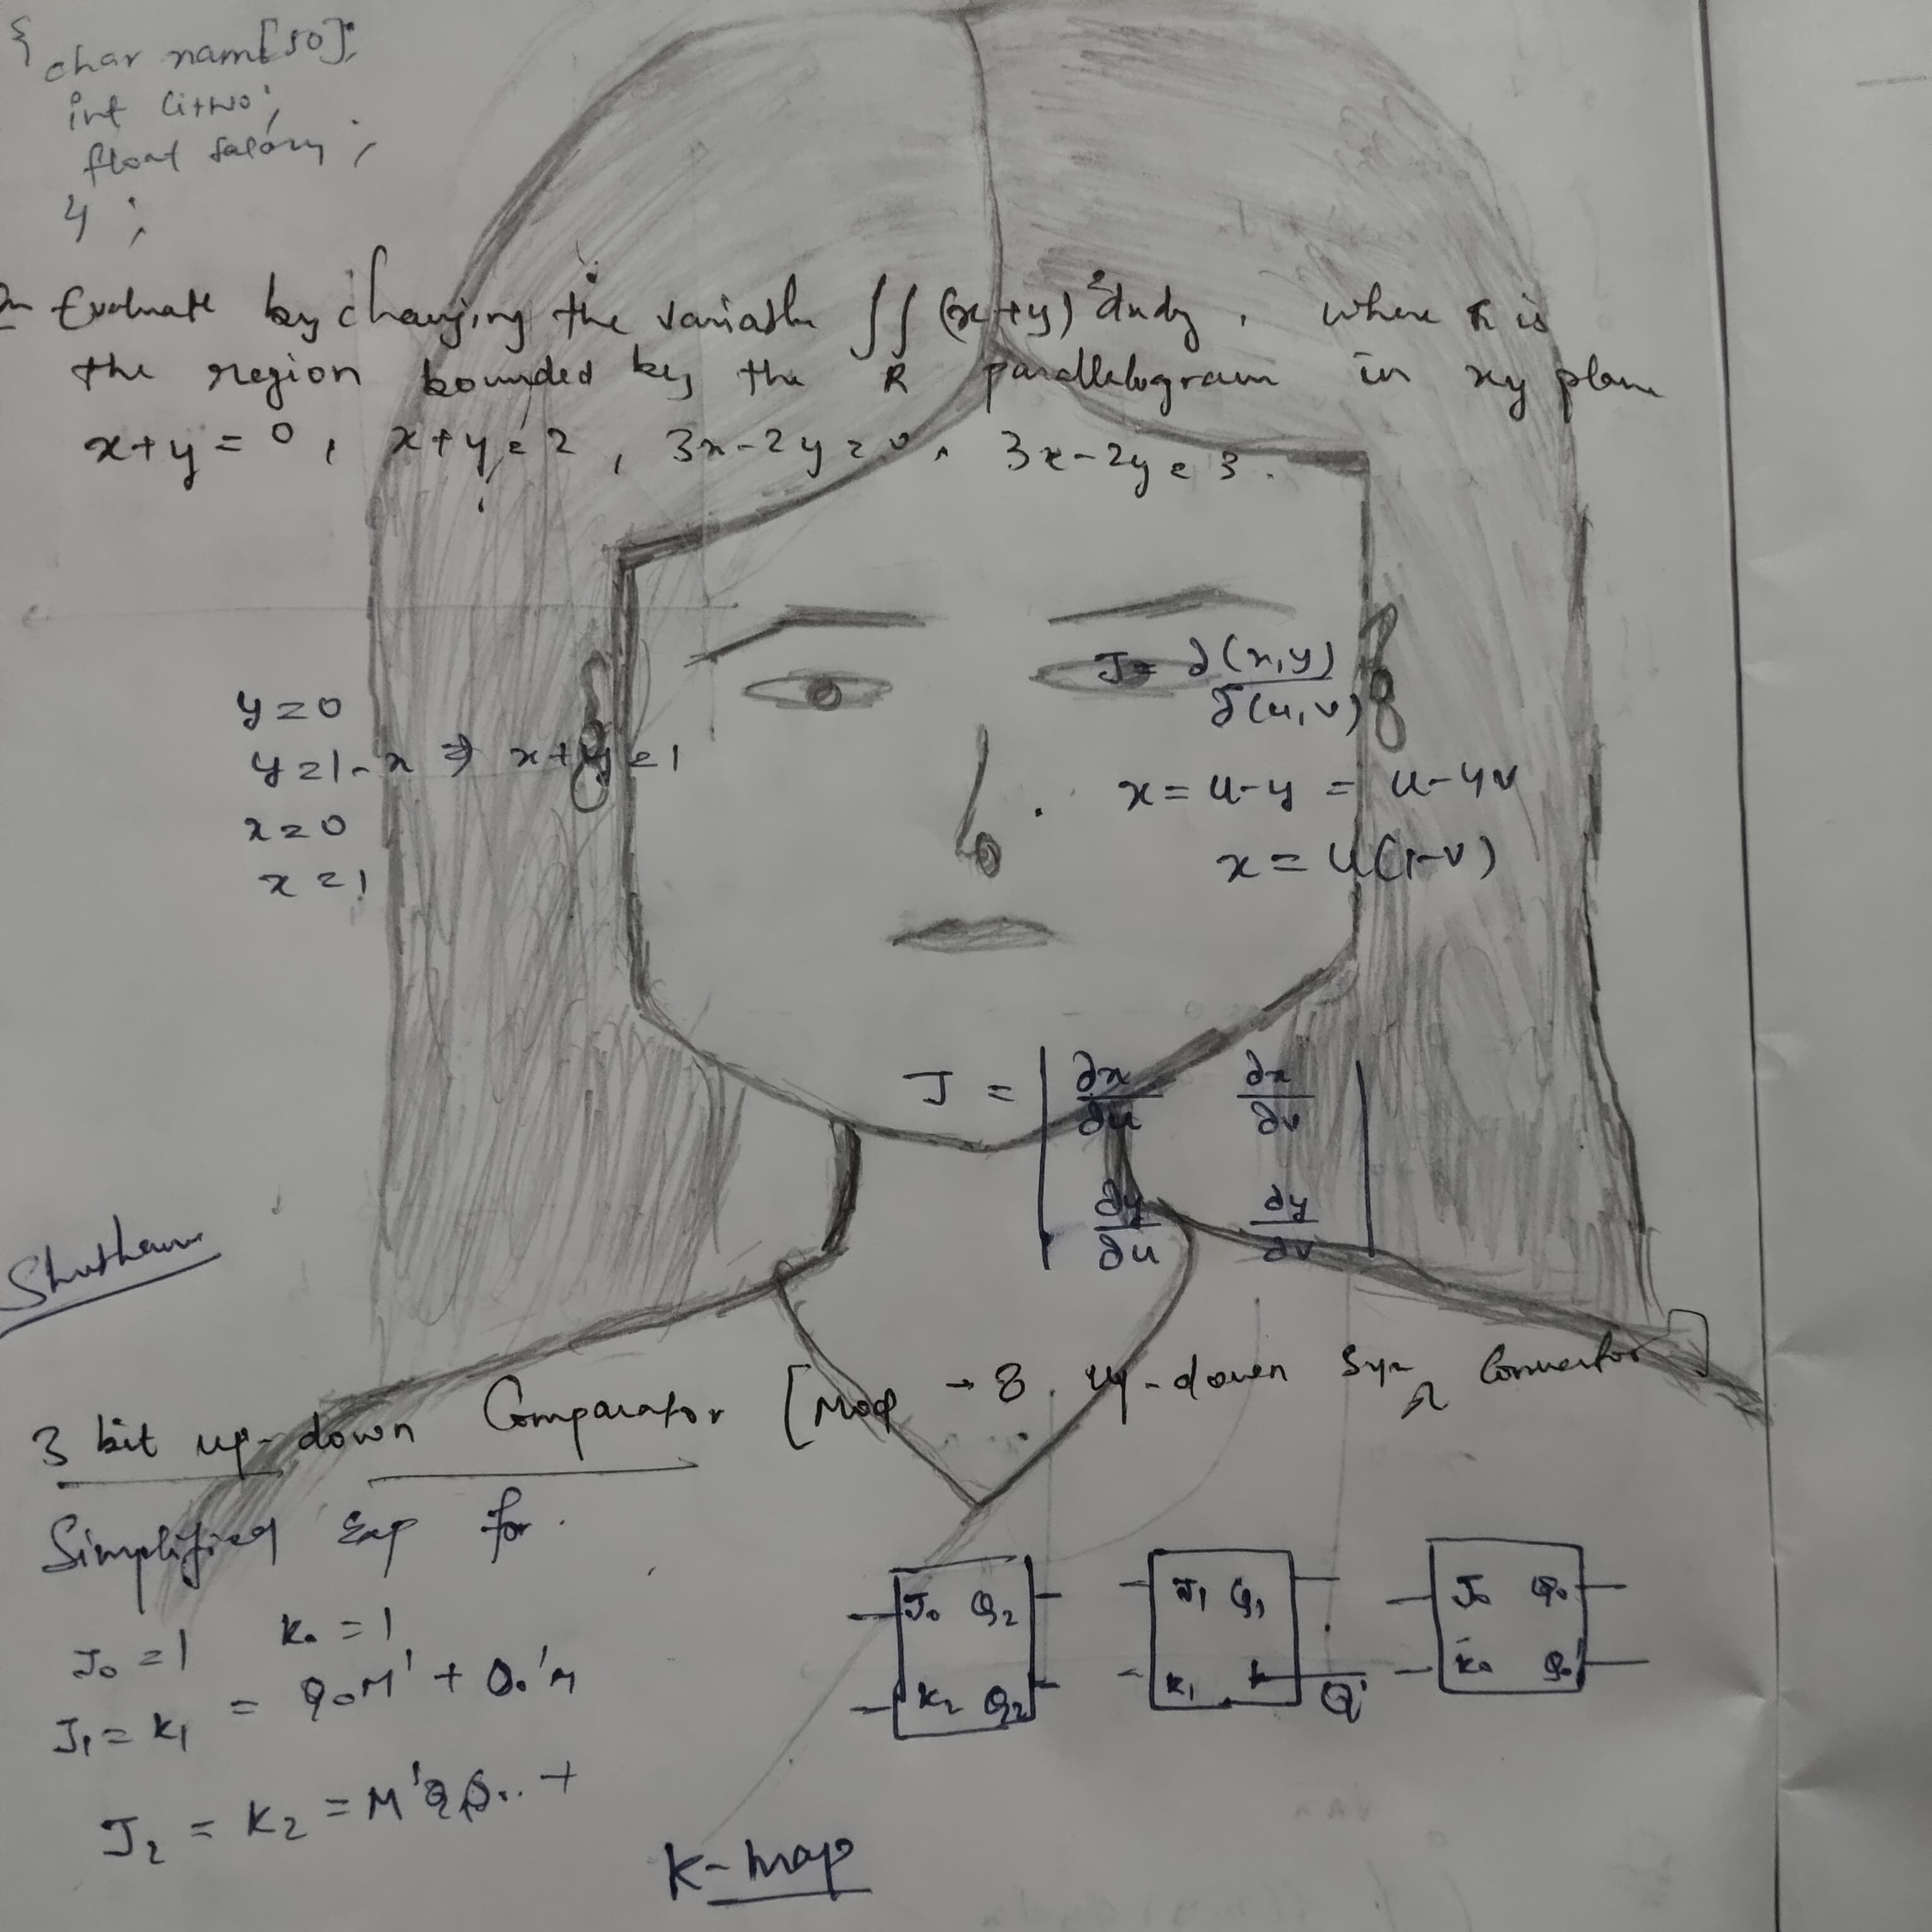 {
char name[50];
int
float salary;
};
Evaluate by changing the variable ∫∫ (x+y)² dxdy, where R is
the region bounded by the R parallelogram in xy plane
x+y=0, x+y=2, 3x-2y=0, 3x-2y=3.
J = ∂(x,y)/∂(u,v)
y=0
y=1-x ⇒ x+y=1
x=0
x=1
x=u-y = u-uv
x=u(1-v)
J = | ∂x/∂u ∂x/∂v |
| ∂y/∂u ∂y/∂v |
3 bit up-down Comparator [Mod -8 up-down Syn Convertor]
Simplified Exp for
J₀=1 K₀=1
J₁=K₁ = Q₀M' + Q₀'M
J₂ = K₂ = M'Q₁Q₀.. +
J₀ Q₂
K₂ Q₂
J₁ Q₁
K₁ K Q'
J₀ Q₀
K₀ Q₀'
K-map